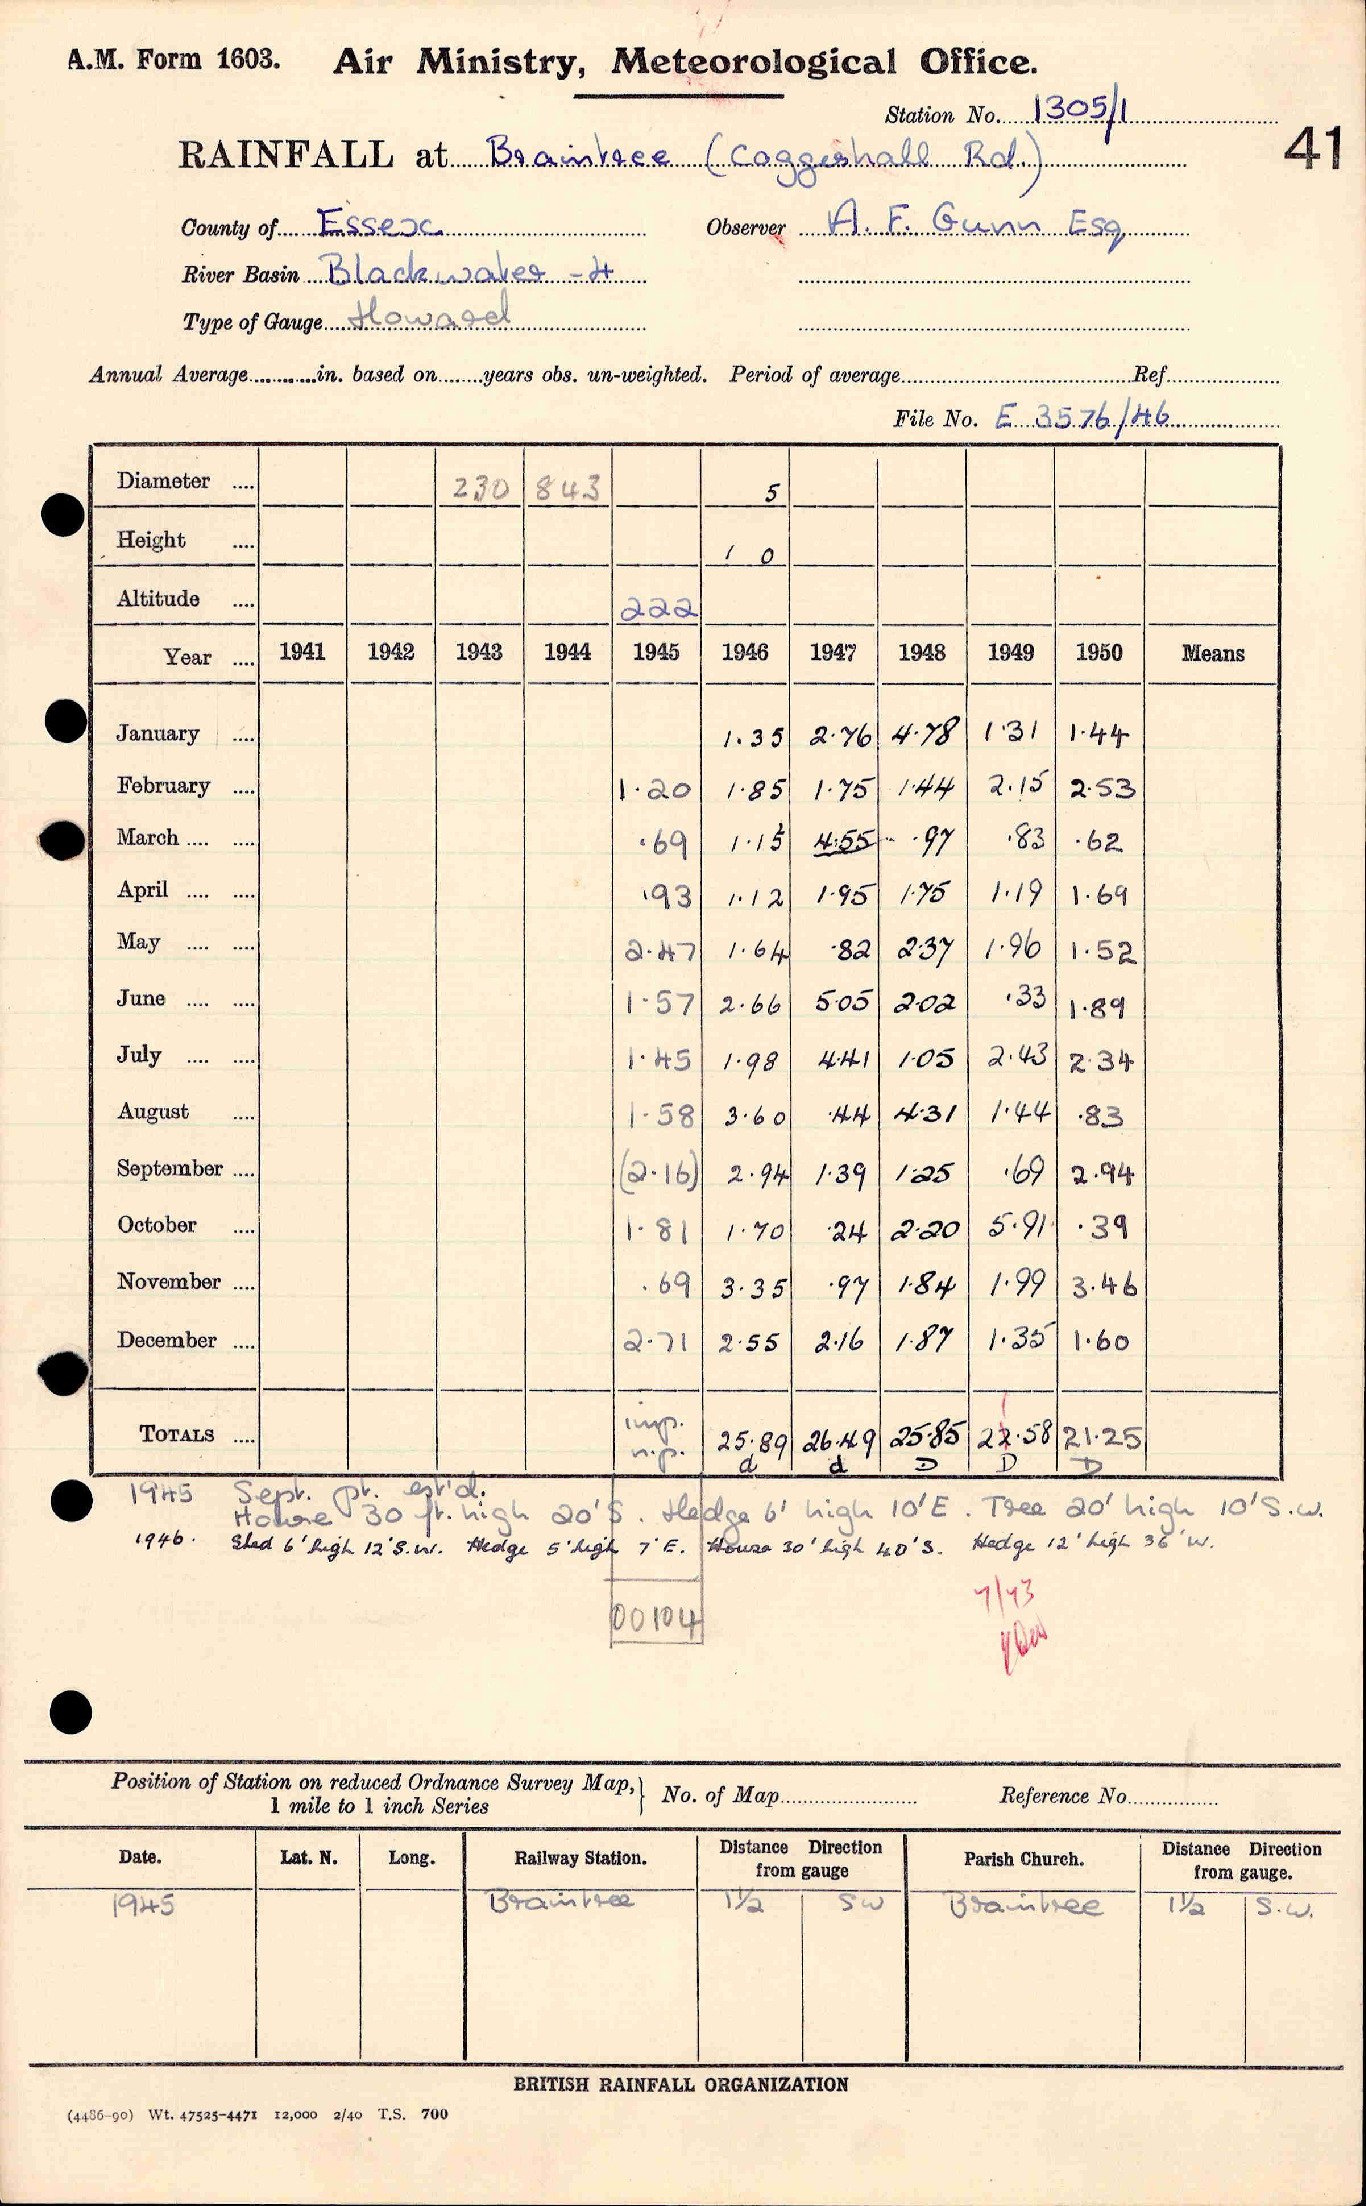 A.M. Form 1603. Air Ministry, Meteorological Office.
Station No. 1305/1
41
RAINFALL at Braintree (Coggeshall Rd.)
County of Essex Observer A. F. Gunn Esq
River Basin Blackwater -4
Type of Gauge Howard
Annual Average in. based on years obs. un-weighted. Period of average Ref
File No. E 3576/46
Diameter 230 843 5
Height 1 0
Altitude 222
Year 1941 1942 1943 1944 1945 1946 1947 1948 1949 1950 Means
January 1.35 2.76 4.78 1.31 1.44
February 1.20 1.85 1.75 1.44 2.15 2.53
March .69 1.15 4.55 .97 .83 .62
April .93 1.12 1.95 1.75 1.19 1.69
May 2.47 1.64 .82 2.37 1.96 1.52
June 1.57 2.66 5.05 2.02 .33 1.89
July 1.45 1.98 4.41 1.05 2.43 2.34
August 1.58 3.60 .44 4.31 1.44 .83
September (2.16) 2.94 1.39 1.25 .69 2.94
October 1.81 1.70 .24 2.20 5.91 .39
November .69 3.35 .97 1.84 1.99 3.46
December 2.71 2.55 2.16 1.87 1.35 1.60
TOTALS imp. n.p. 25.89 26.49 25.85 .58 21.25
d d D D D
1945 Sept. pt. est'd.
House 30 ft. high 20'S. Hedge 6' high 10'E. Tree 20' high 10'S.W.
1946. Shed 6' high 12'S.W. Hedge 5' high 7'E. House 30' high 40'S. Hedge 12' high 36'W.
7/73
00104
Position of Station on reduced Ordnance Survey Map, 1 mile to 1 inch Series } No. of Map Reference No
Date. Lat. N. Long. Railway Station. Distance Direction from gauge Parish Church. Distance Direction from gauge.
1945 Braintree 1½ SW Braintree 1½ S.W.
BRITISH RAINFALL ORGANIZATION
(4486-90) Wt. 47525-4471 12,000 2/40 T.S. 700